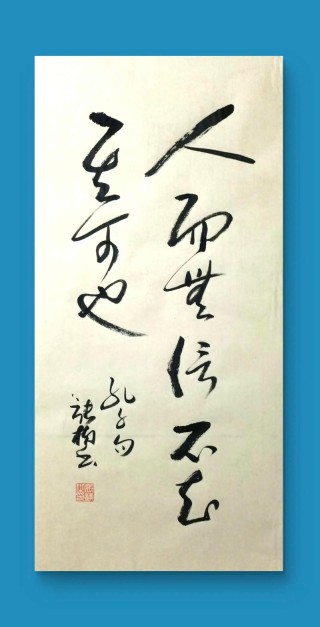 人而無信不知
其可也
孔子句